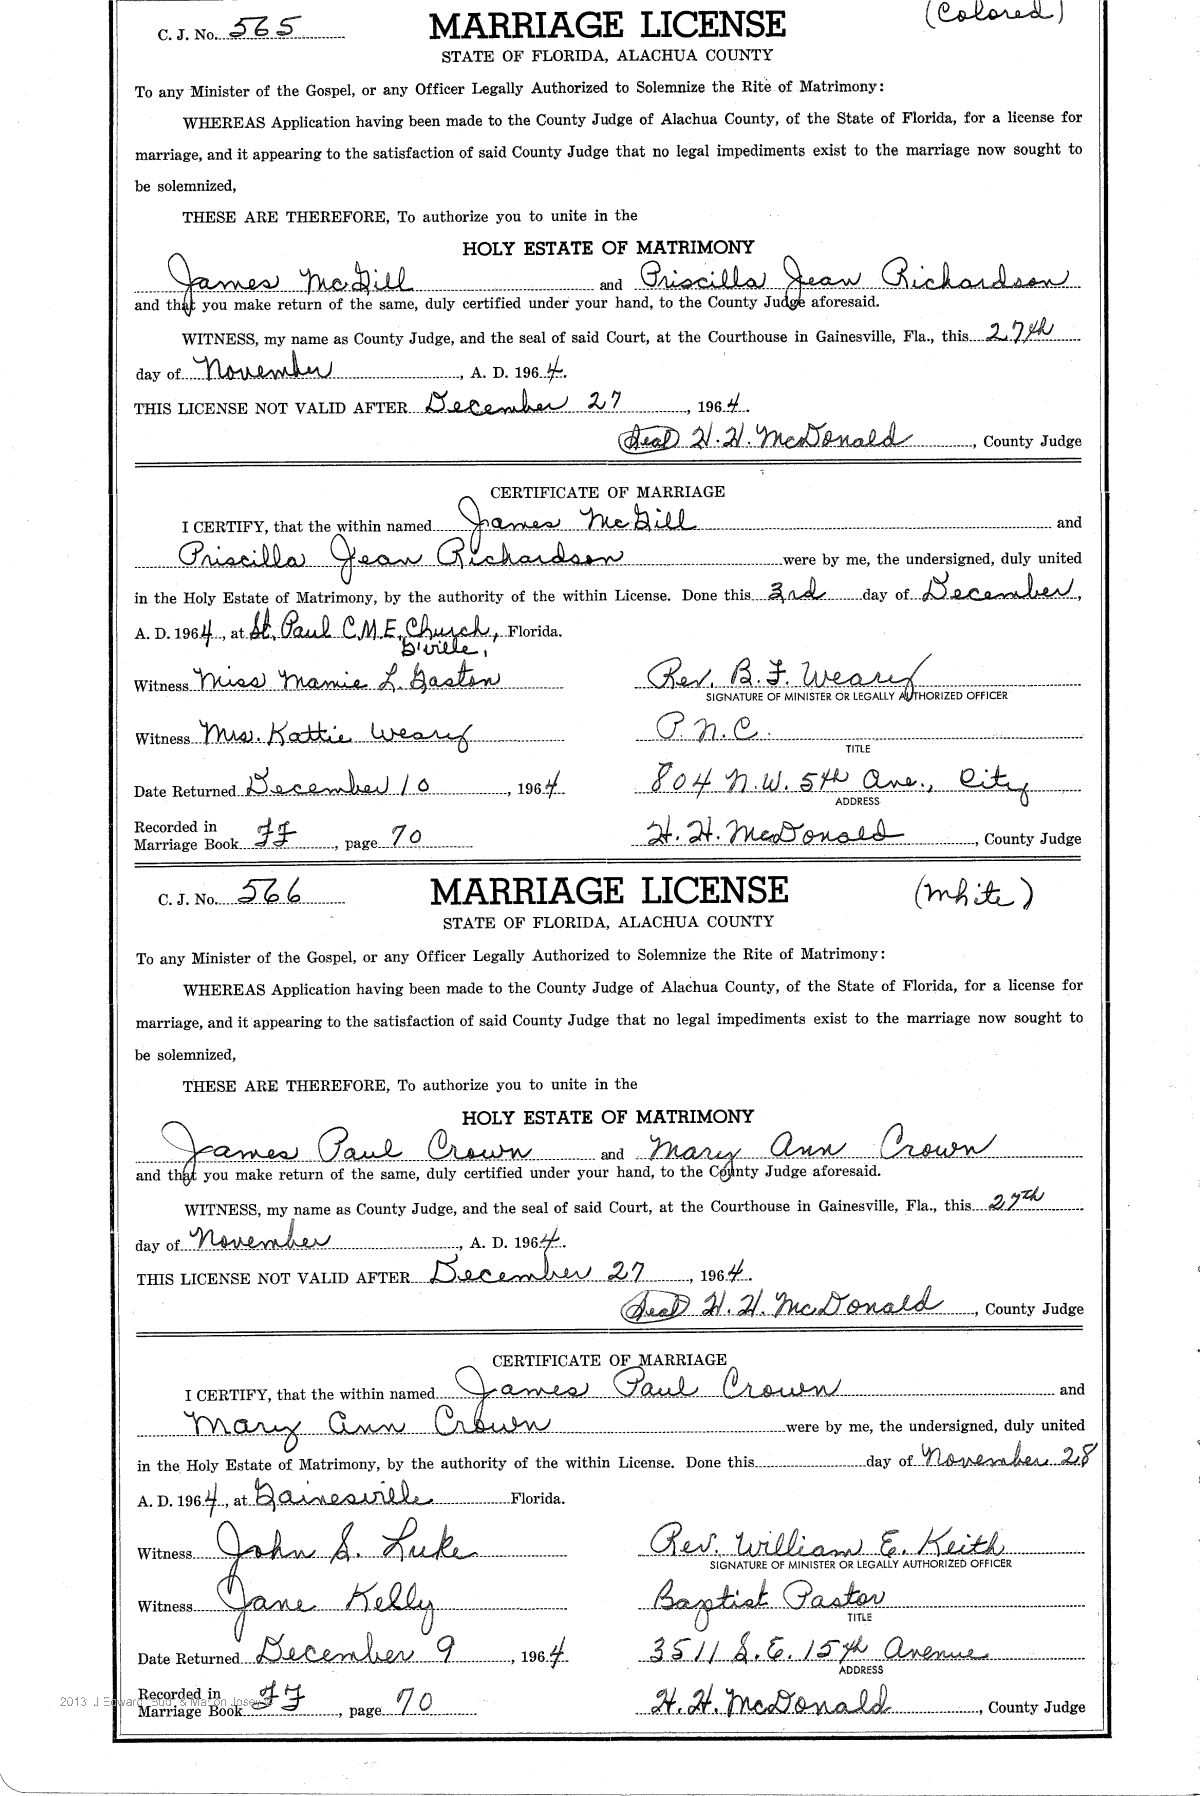 C. J. No. 565 MARRIAGE LICENSE (Colored)
STATE OF FLORIDA, ALACHUA COUNTY
To any Minister of the Gospel, or any Officer Legally Authorized to Solemnize the Rite of Matrimony:
WHEREAS Application having been made to the County Judge of Alachua County, of the State of Florida, for a license for
marriage, and it appearing to the satisfaction of said County Judge that no legal impediments exist to the marriage now sought to
be solemnized,
THESE ARE THEREFORE, To authorize you to unite in the
HOLY ESTATE OF MATRIMONY
James McGill and Priscilla Jean Richardson
and that you make return of the same, duly certified under your hand, to the County Judge aforesaid.
WITNESS, my name as County Judge, and the seal of said Court, at the Courthouse in Gainesville, Fla., this 27th
day of November, A. D. 1964.
THIS LICENSE NOT VALID AFTER December 27, 1964.
(Seal) H. H. McDonald, County Judge
CERTIFICATE OF MARRIAGE
I CERTIFY, that the within named James McGill and
Priscilla Jean Richardson were by me, the undersigned, duly united
in the Holy Estate of Matrimony, by the authority of the within License. Done this 3rd day of December,
A. D. 1964, at St. Paul C.M.E. Church, Florida.
G'ville,
Witness Miss Mamie L. Gaston Rev. B. F. Weary
SIGNATURE OF MINISTER OR LEGALLY AUTHORIZED OFFICER
Witness Mrs. Kattie Weary P. N. C.
TITLE
Date Returned December 10, 1964 804 N.W. 5th Ave., City
ADDRESS
Recorded in
Marriage Book FF, page 70 H. H. McDonald, County Judge
C. J. No. 566 MARRIAGE LICENSE (White)
STATE OF FLORIDA, ALACHUA COUNTY
To any Minister of the Gospel, or any Officer Legally Authorized to Solemnize the Rite of Matrimony:
WHEREAS Application having been made to the County Judge of Alachua County, of the State of Florida, for a license for
marriage, and it appearing to the satisfaction of said County Judge that no legal impediments exist to the marriage now sought to
be solemnized,
THESE ARE THEREFORE, To authorize you to unite in the
HOLY ESTATE OF MATRIMONY
James Paul Crown and Mary Ann Crown
and that you make return of the same, duly certified under your hand, to the County Judge aforesaid.
WITNESS, my name as County Judge, and the seal of said Court, at the Courthouse in Gainesville, Fla., this 27th
day of November, A. D. 1964.
THIS LICENSE NOT VALID AFTER December 27, 1964.
(Seal) H. H. McDonald, County Judge
CERTIFICATE OF MARRIAGE
I CERTIFY, that the within named James Paul Crown and
Mary Ann Crown were by me, the undersigned, duly united
in the Holy Estate of Matrimony, by the authority of the within License. Done this day of November 28
A. D. 1964, at Gainesville Florida.
Witness John S. Luke Rev. William E. Keith
SIGNATURE OF MINISTER OR LEGALLY AUTHORIZED OFFICER
Witness Jane Kelly Baptist Pastor
TITLE
Date Returned December 9, 1964 3511 S.E. 15th Avenue
ADDRESS
2013 J Edward
Recorded in
Marriage Book FF, page 70 H. H. McDonald, County Judge